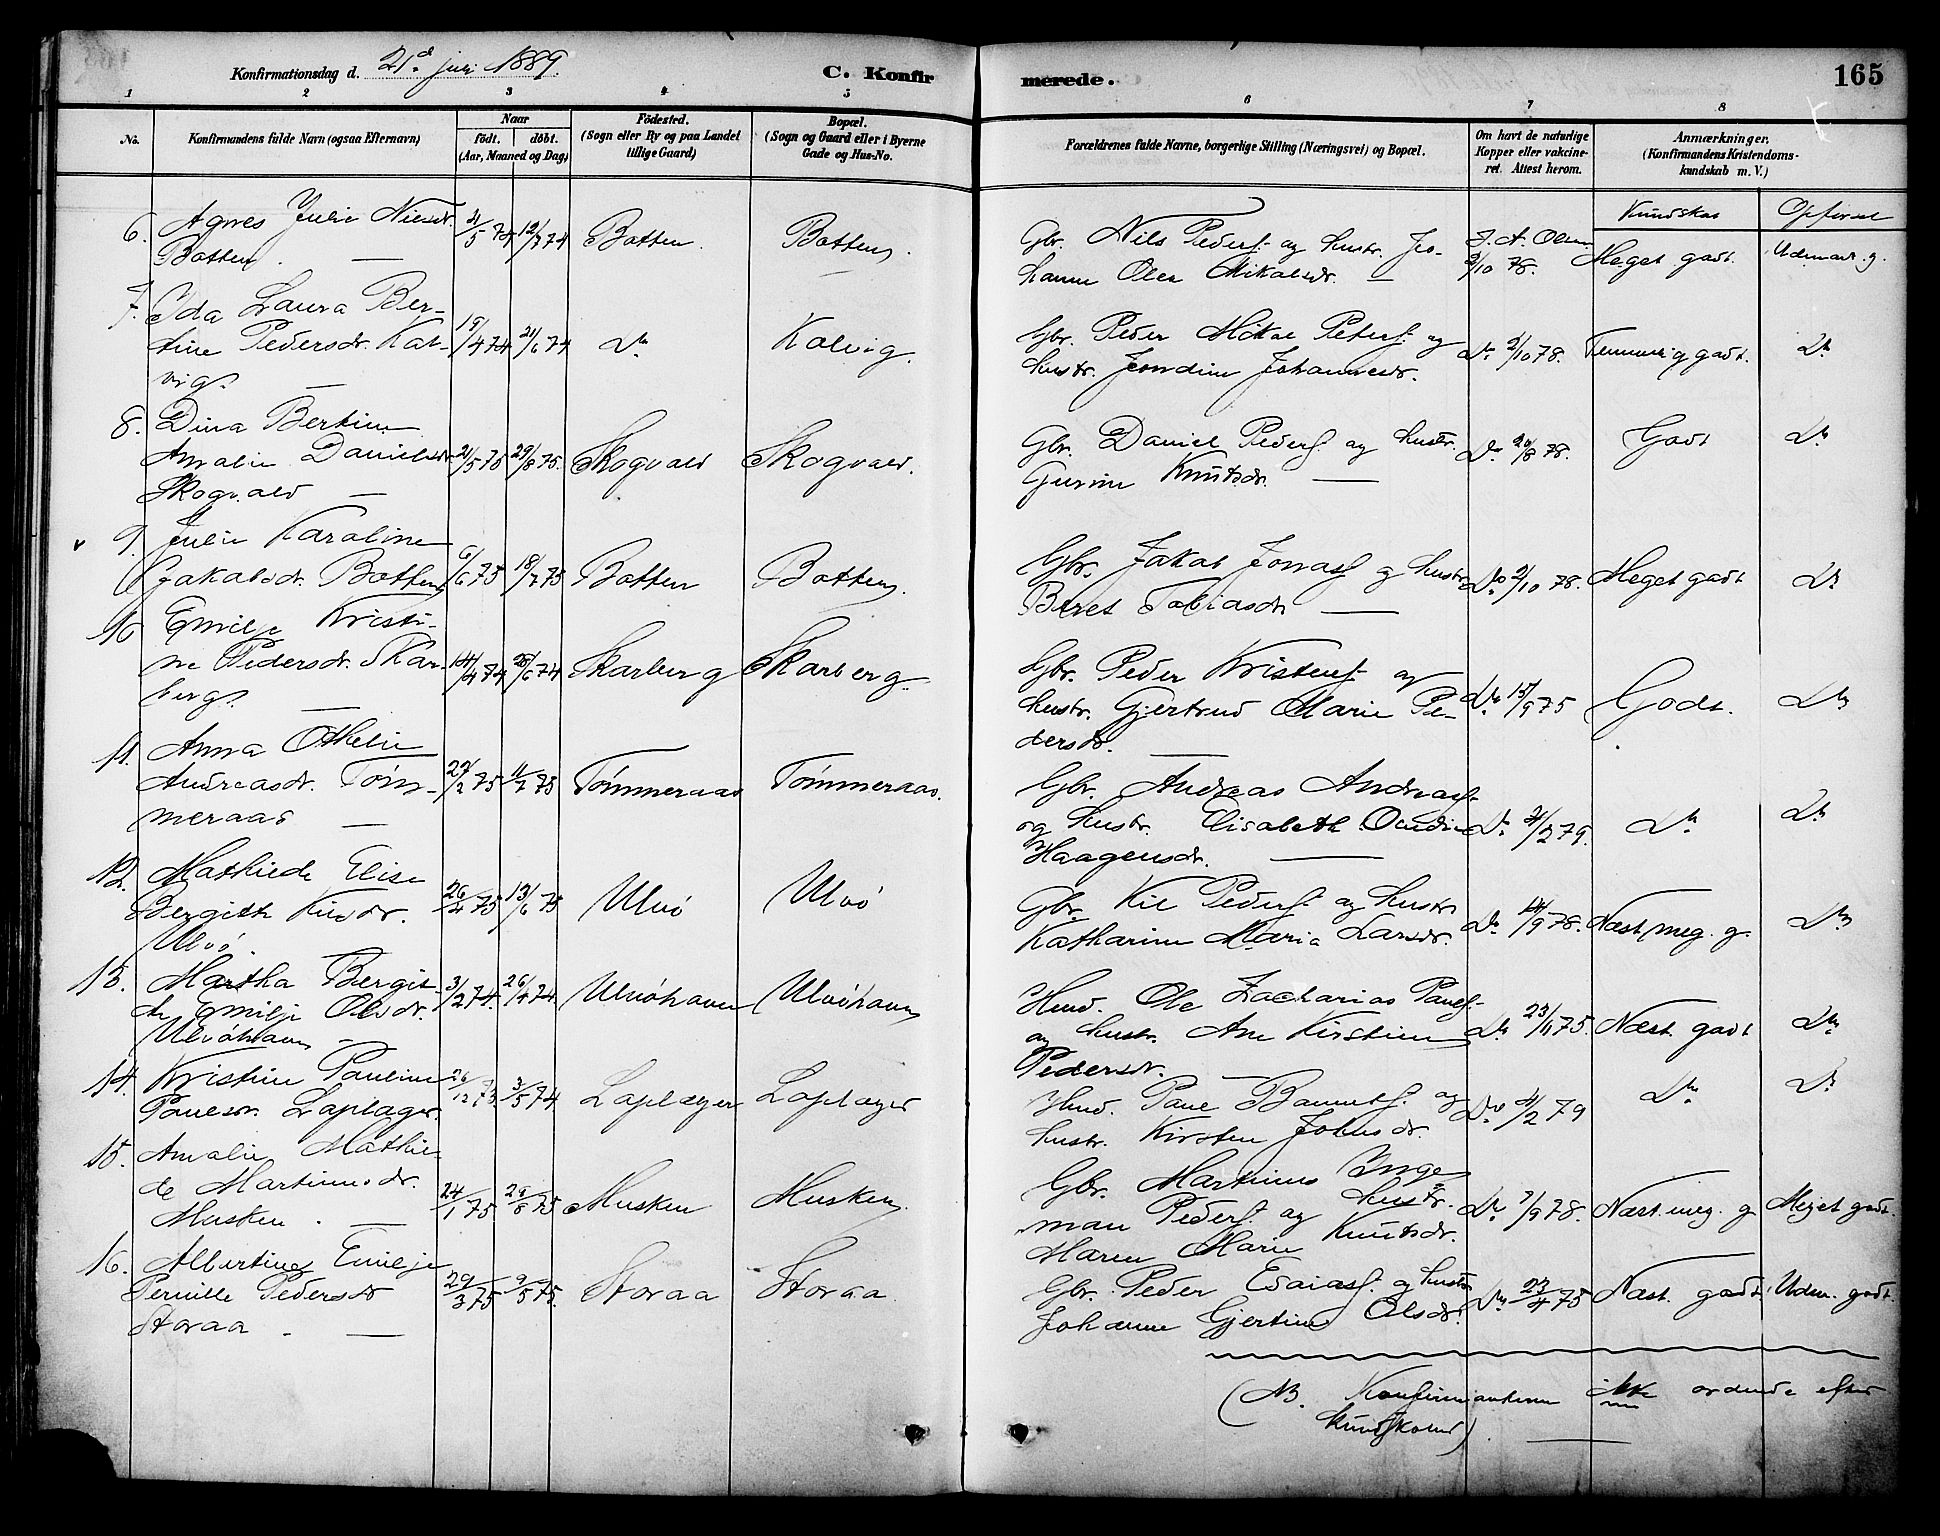 Konfirmationsdag d. 21d juli 1889.
C. Konfir
merede.
165
1 2 3 4 5 6 7 8
No.
Konfirmandens fulde Navn (ogsaa Efternavn)
Naar
födt. döbt.
(Aar, Maaned og Dag)
Födested.
(Sogn eller By og paa Landet
tillige Gaard)
Bopæl.
(Sogn og Gaard eller i Byerne
Gade og Hus-No.
Forældrenes fulde Navne, borgerlige Stilling (Næringsvei) og Bopæl.
Om havt de naturlige
Kopper eller vakcine-
ret. Attest herom.
Anmærkninger.
(Konfirmandens Kristendoms-
kundskab m. V.)
Kundskab Opførsel
6. Agnes Julie Nilsdr.
Botten. —
12/7 74 Botten. Botten.
Gbr. Nils Peders. og hustr. Jo-
hanne Olea Mikalsdr. —
J. A. Olsen
2/10 78. Meget godt. Udmærk. g.
7. Ida Laura Ber-
tine Pedersdr. Kal-
vig. —
19/4 74 21/6 74 Do Kalvig.
Gbr. Peder Mikal Peters. og
hustr. Jondine Johannesdr.
Do 2/10 78. Temmelig godt. Do
8. Dina Bertine
Amalie Danielsdr.
Skogvald —
21/5 75 29/8 75. Skogvald Skogvald.
Gbr. Daniel Peders. og hustr.
Gurine Knutsdr. —
Do 20/8 78. Godt Do
9. Julie Karoline
Jakobsdr. Botten
6/6 75 18/7 75 Botten Botten.
Gbr. Jakob Jonas. og hustr.
Beret Tobiasdr —
Do 2/10 78. Meget godt Do
10 Emilje Kristi-
ne Pedersdr. Skar-
berg. —
14/4 74 28/6 74 Skarberg Skarberg.
Gbr. Peder Kristens. og
hustr. Gjertrud Marie Pe-
dersdr. —
Do 15/9 75 Godt. Do
11. Anna Othelie
Andreasdr. Töm-
meraas —
27/2 75 11/7 75 Tömmeraas Tömmeraas.
Gbr. Andreas Andreas.
og hustr. Elisabeth
Haagensdr. —
Do 2 79. Do Do
12. Mathilde Elise
Bergitte Kilsdr.
Ulvö.
26/4 75 13/6 75 Ulvö Ulvö
Gbr. Kil Peders. og hustr
Katharine Maria Larsdr.
Do 14/9 78. Næst meg. g. Do
13. Martha Bergit-
te Emilje Olsdr.
Ulvöhavn —
3/2 74. 26/4 74. Ulvöhavn Ulvöhavn
Hmd. Ole Zacharias Pauls.
og hustr. Ane Kirstine
Pedersdr. —
Do 23/11 75. Næst. godt Do
14. Kristine Pauline
Paulsdr. Laplager.
26/12 73. 3/5 74 Laplager Laplager
Hmd. Paul og
hustr. Kirsten Johnsdr.
Do 2 79 Do Do
15. Amalie Mathil-
de Martinusdr.
Musken. —
24/1 75 29/8 75 Musken Musken.
Gbr. Martinus Inge-
man Peders. og hustr.
Maren Marie Knutsdr.
Do 7/9 78. Næst. meg. g Meget godt.
16. Albertine Emilje
Pernille Pedersdr
Storaa. —
29/3 75 9/5 75. Storaa Storaa.
Gbr. Peder Esaias. og hustr
Johanne Gjertine Olsdr.
Do 27/4 75 Næst. godt. Udm. godt.
(NB. Konfirmanterne ikke ordnede efter
kundskaber). —